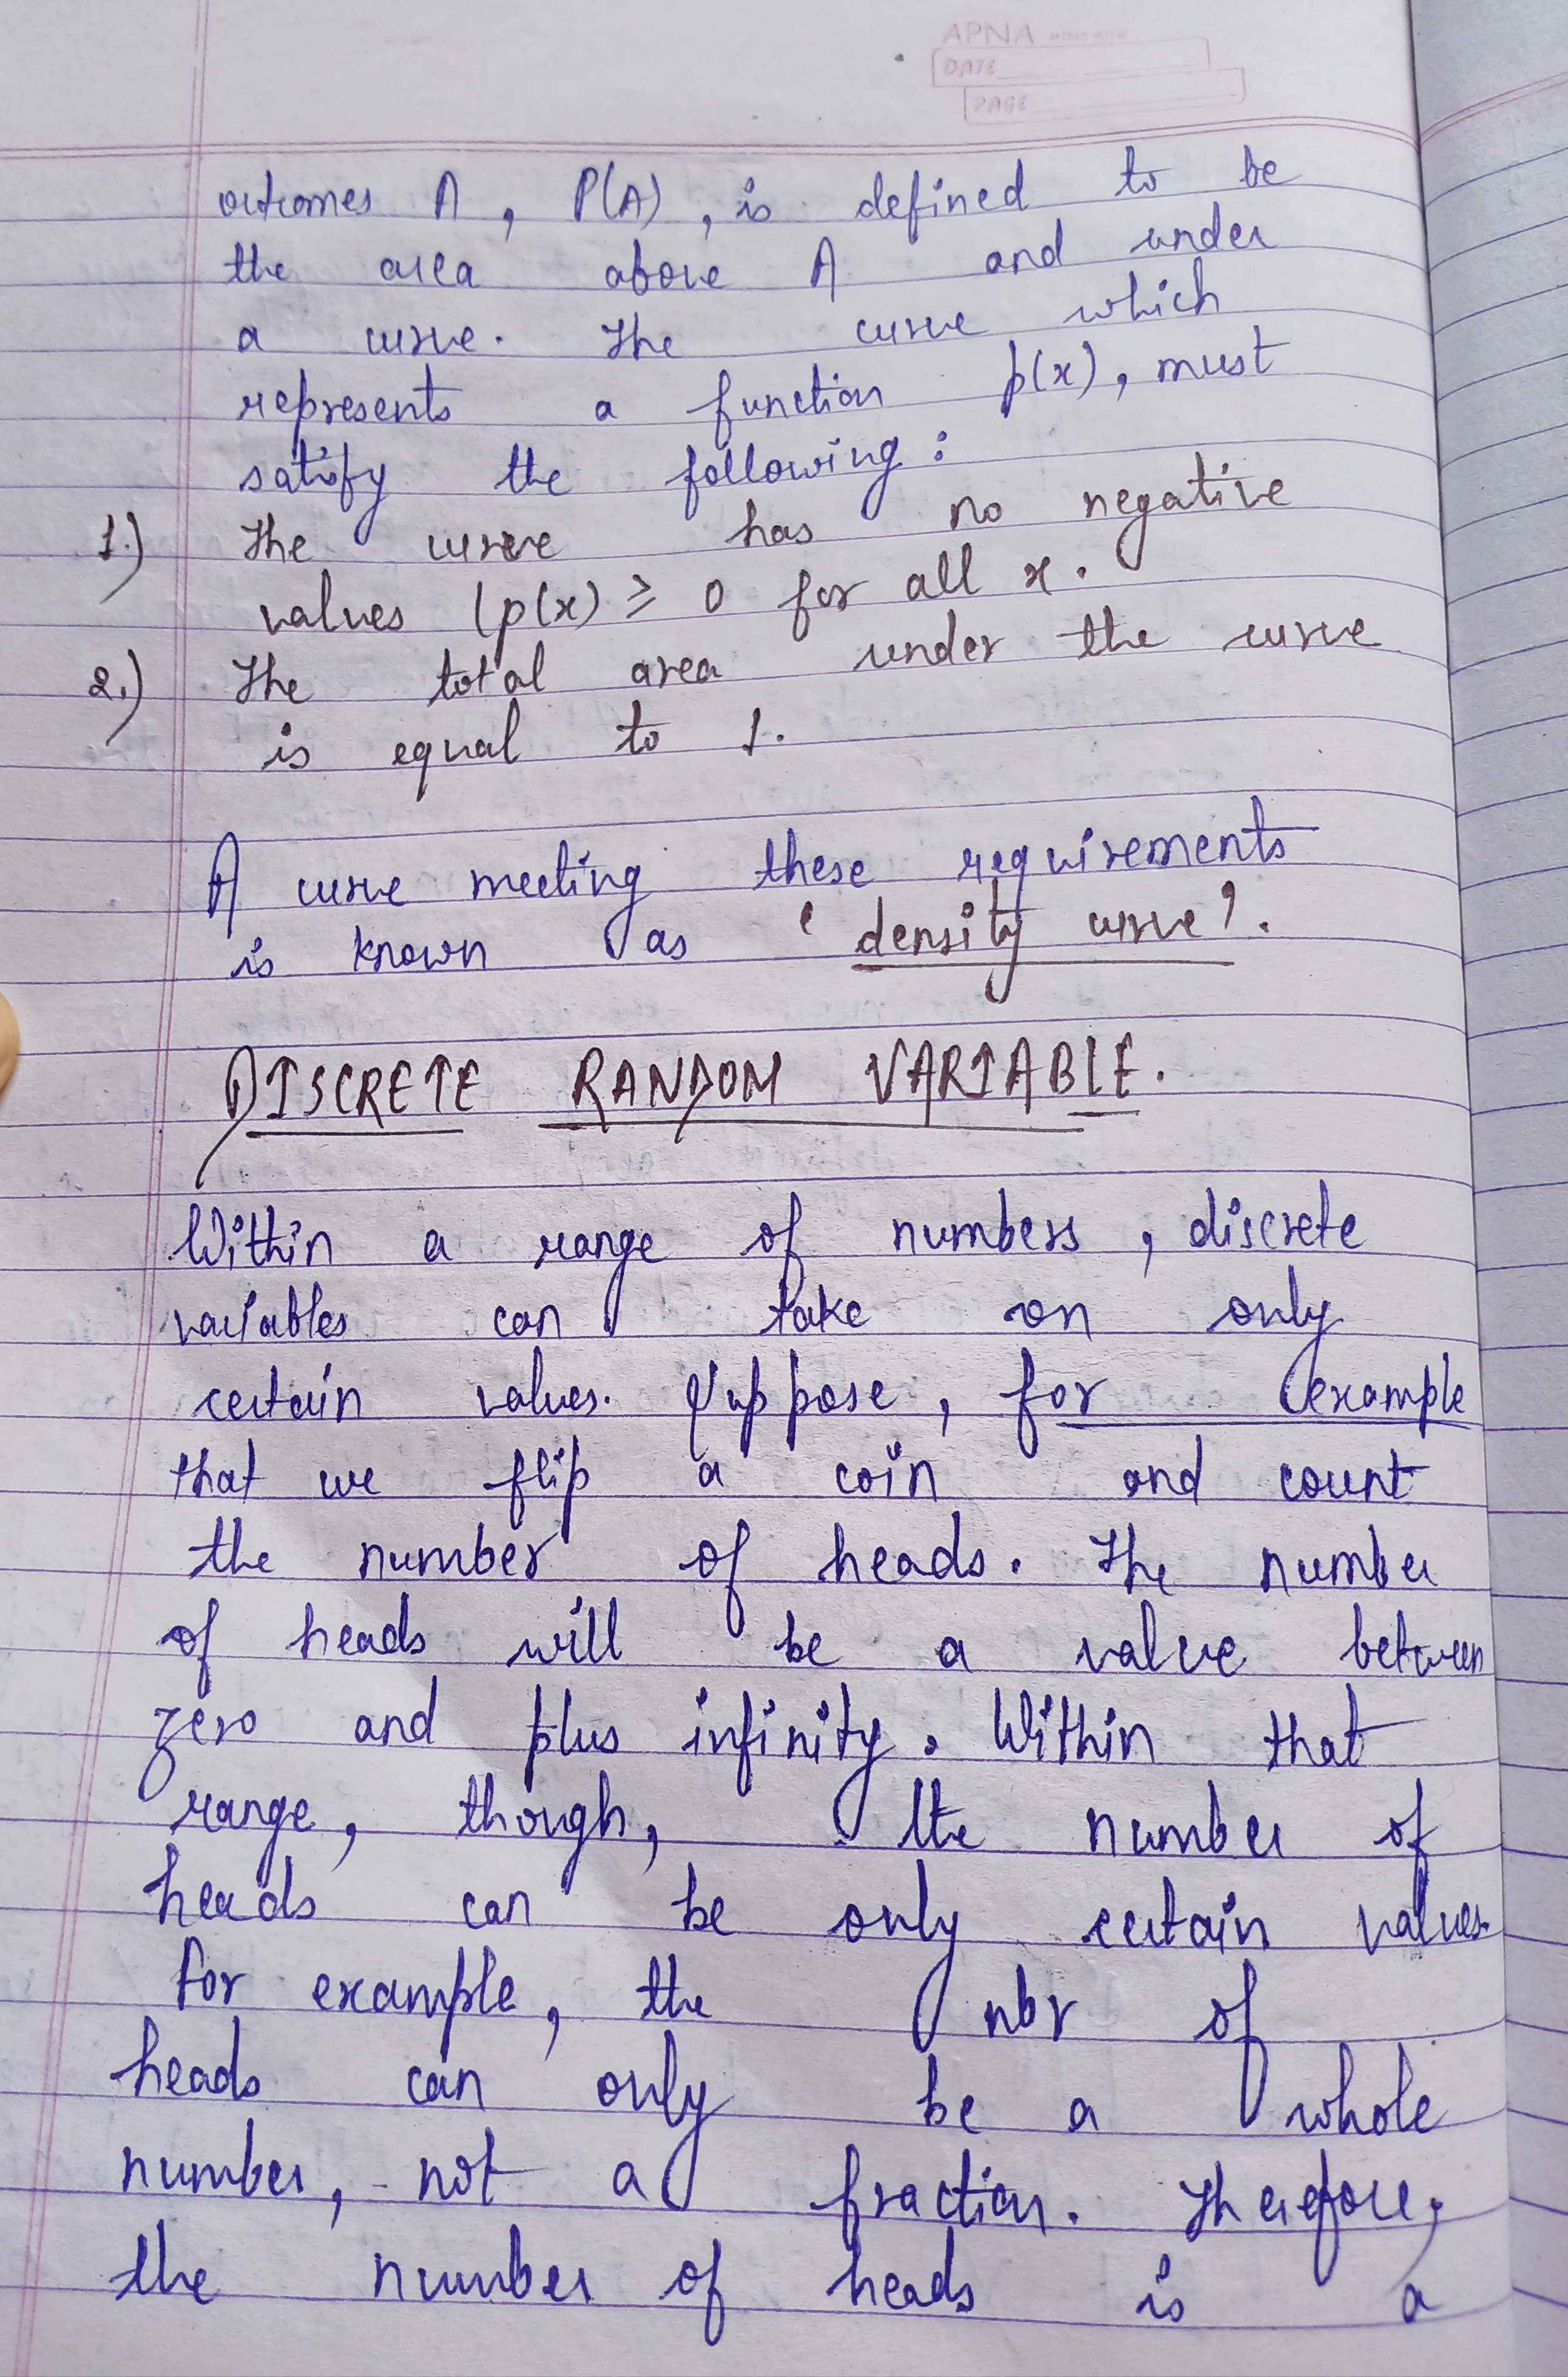 APNA
DATE
PAGE
outcomes A, P(A), is defined to be
the area above A and under
a curve. The curve which
represents a function p(x), must
satisfy the following:
1.) The curve has no negative
values (p(x) ≥ 0 for all x.
2.) The total area under the curve
is equal to 1.
A curve meeting these requirements
is known as 'density curve'.
DISCRETE RANDOM VARIABLE.
Within a range of numbers, discrete
variables can take on only
certain values. Suppose, for example
that we flip a coin and count
the number of heads. The number
of heads will be a value between
zero and plus infinity. Within that
range, though, the number of
heads can be only certain values.
For example, the nbr of
heads can only be a whole
number, not a fraction. Therefore,
the number of heads is a